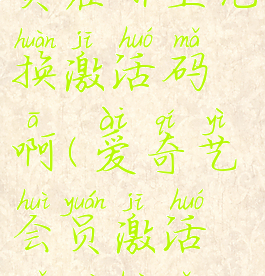 huàn jī huó mǎ
换激活码
ā ài qí yì
啊(爱奇艺
huì yuán jī huó
会员激活